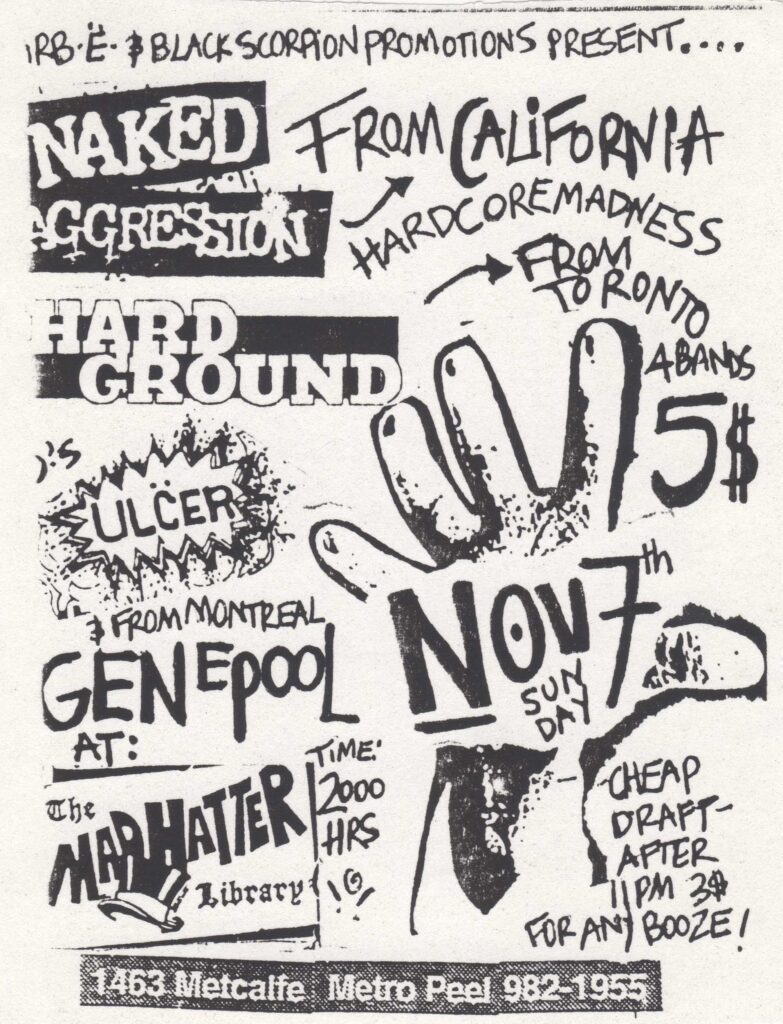 RB·Ë· $ BLACK SCORPION PROMOTIONS PRESENT....
NAKED
AGGRESSION
FROM CALIFORNIA
HARDCORE MADNESS
FROM
TORONTO
HARD
GROUND
4 BANDS
5$
'S
ULC̈ER
$ FROM MONTREAL
GENEPOOL
NOV 7th
SUN
DAY
AT:
The
MAD HATTER
Library
TIME:
2000
HRS
CHEAP
DRAFT-
AFTER
11 PM 3$
FOR ANY BOOZE!
1463 Metcalfe Metro Peel 982-1955